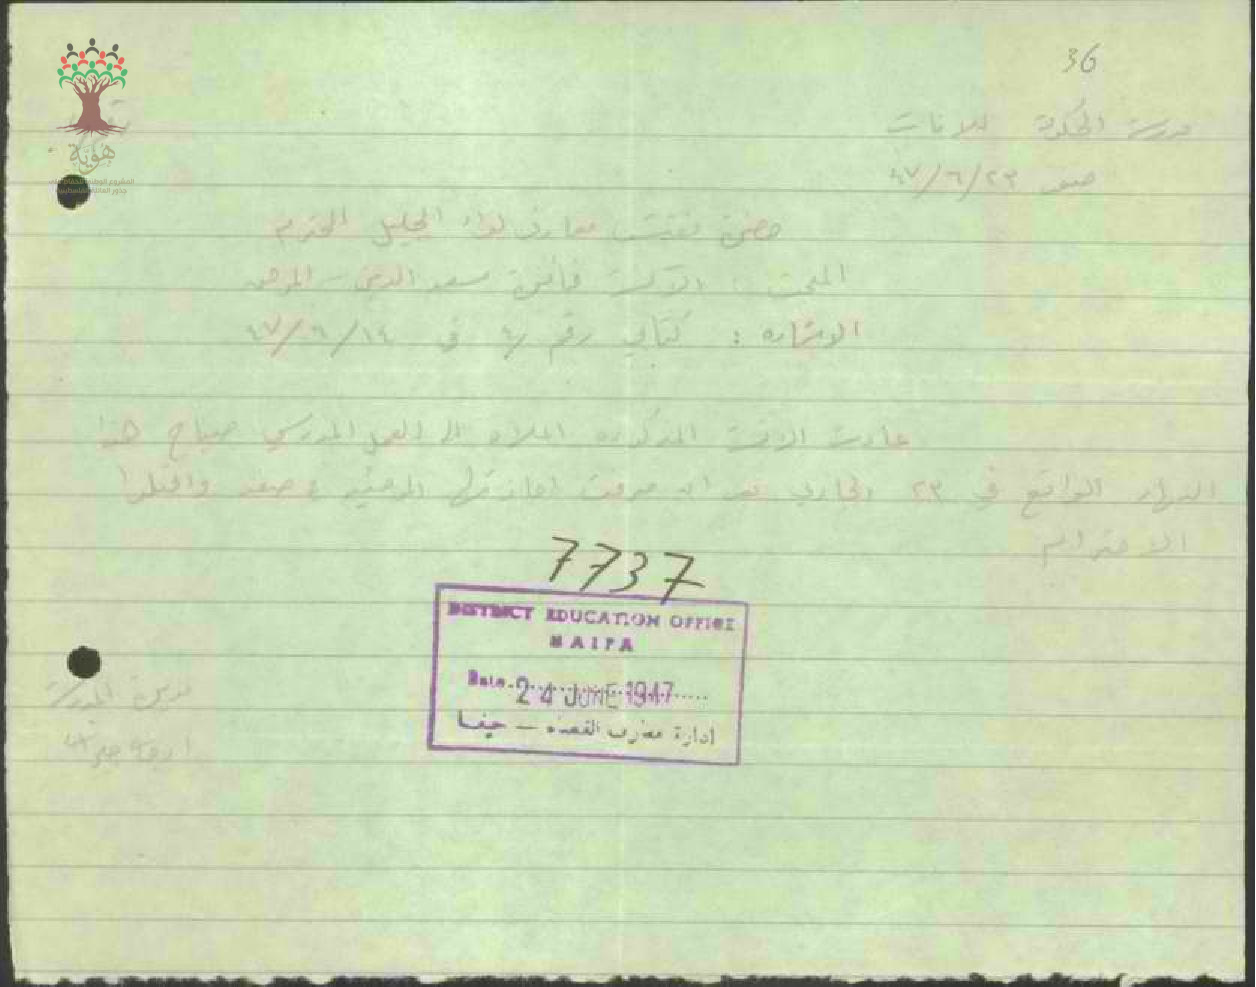 36
مدرسة الحكومة للاناث
صفد ٢٣/٦/٤٧
حضرة مفتش معارف لواء الجليل المحترم
المبحث : الآنسة فائزة سعد الدين –
الاشارة : كتابي رقم في ١٤/٦/٤٧
عادت الآنسة المذكورة اعلاه الى العمل المدرسي صباح هذا
النهار الواقع في ٢٣ الجاري بعد ان صرفت اجازتها المرضية في صفد واقبلوا
الاحترام
7737
DISTRICT EDUCATION OFFICE
HAIFA
Date 24 JUNE 1947
ادارة معارف القضاء – حيفا
مديرة المدرسة
هوية